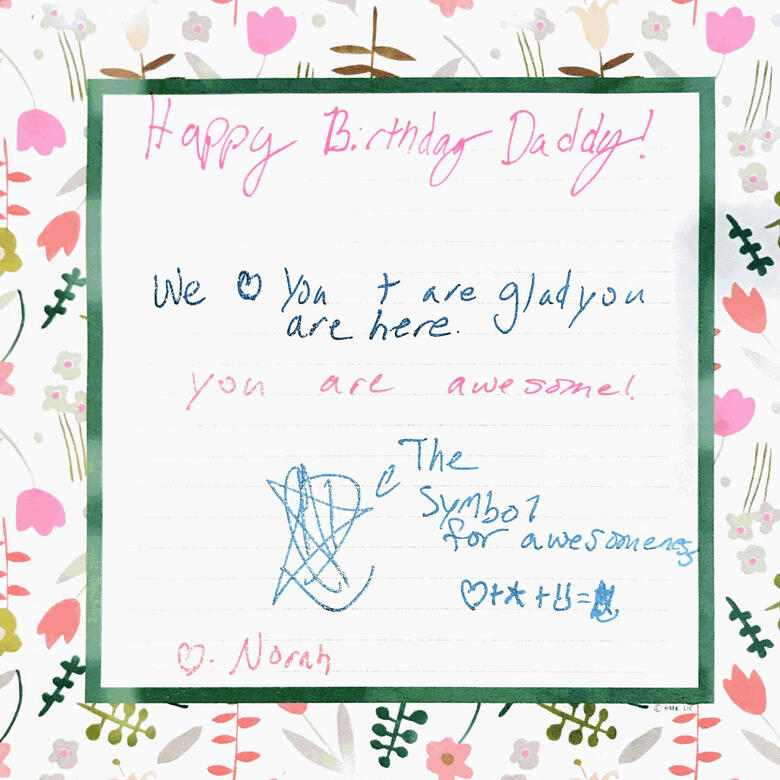 Happy Birthday Daddy!
We ♡ You + are glad you
are here.
you are awesome!
The
Symbol
for awesomeness
♡+★+☺=
♡. Norah
© HMK LIC